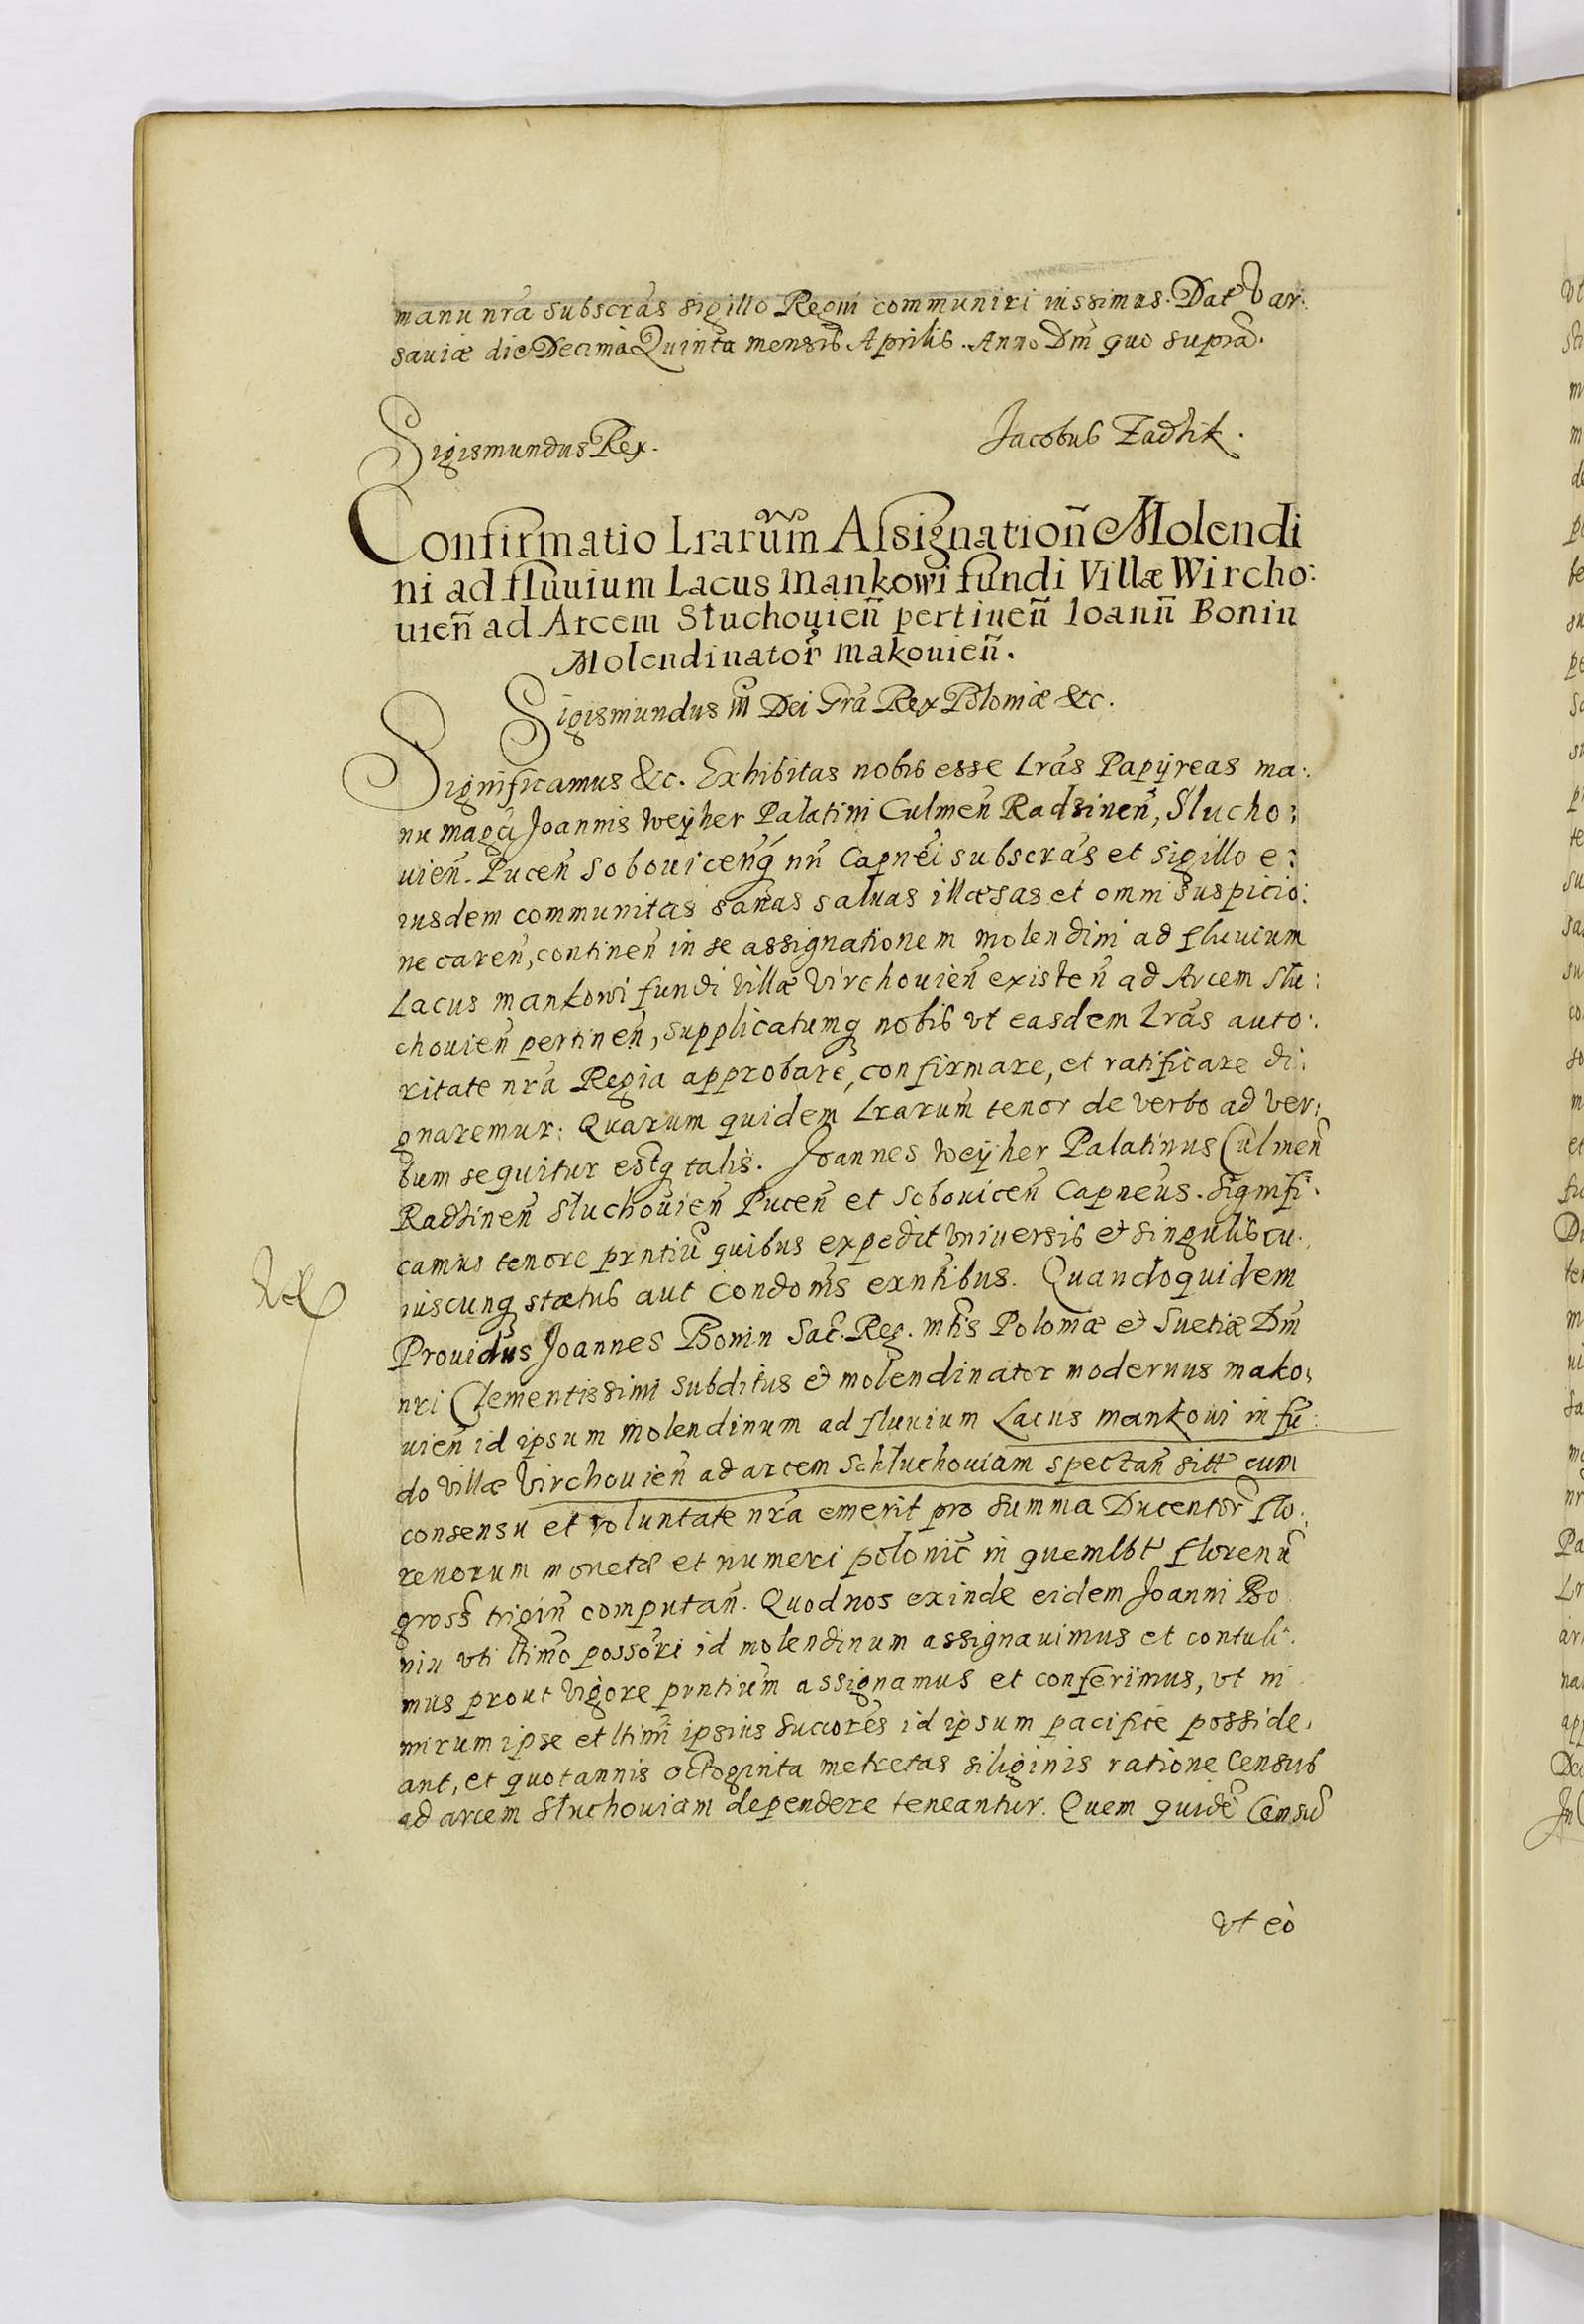 manu nrã subscrãs sigillo Regni communiri iussimus. Dat Var:
saviæ die Decima Quinta mensis Aprilis. Anno Dm̃ quo supra.
Sigismundus Rex.
Jacobus Zadzik.
Confirmatio Lrarum̃ Assignation̄ Molendi
ni ad fluvium Lacus Mankowi fundi Villæ Wircho:
uien̄ ad Arcem Stuchouien̄ pertinen̄ Ioann̄ Bonin
Molendinator̃ Makouien̄.
Sigismundus III Dei Grã Rex Poloniæ &c.
Significamus &c. Exhibitas nobis esse Lrãs Papÿreas ma:
nu magci Joannis Weÿher Palatini Culmen̄ Radzinen̄, Slucho:
uien̄. Pucen̄ Sobouicenq́ nri Capnei subscrãs et sigillo e:
iusdem communitas sanas saluas illæsas et omni suspicio:
ne caren̄, continen̄ in se assignationem molendini ad fluuium
Lacus Mankowi fundi Villæ Virchouien̄ existen̄ ad Arcem Stu:
chouien̄ pertinen̄, supplicatumq nobis vt easdem Lrãs auto:
ritate nrã Regia approbare, confirmare, et ratificare di:
gnaremur: Quarum quidem Lrarum̃ tenor de verbo ad ver:
bum sequitur estq talis. Joannes Weÿher Palatinus Culmen̄
Radzinen̄ Stuchouien̄ Pucen̄ et Sobouicen̄ Capneus. Signifi:
camus tenore prntiũ quibus expedit Vniuersis et singulis cu:
iuscunq status aut Condonis exntibus. Quandoquidem
Prouidus Joannes Bonin Sac. Reg. mtis Poloniæ et Suetiæ Dm̃
nri Clementissimi subditus et molendinator modernus mako:
uien̄ id ipsum molendinum ad fluuium Lacus mankoui in fũ:
do Villæ Virchouien̄ ad arcem Schluchouiam spectan̄ sitt cum
consensu et voluntate nrã emerit pro summa Ducentor̃ flo:
renorum monetæ et numeri polonic̃ in quemlbt florenũ
gross̃ trigin̄ computan̄. Quod nos exinde eidem Joanni Bo
nin vti ltimo possori id molendinum assignauimus et contuli:
mus prout Vigore prntium̃ assignamus et conferimus, vt ni
mirum ipse et ltimi ipsius succores id ipsum pacifice posside:
ant, et quotannis octoginta metretas siliginis ratione Census
ad arcem Stuchouiam dependere teneantur. Quem quidẽ Censũ
vt eò